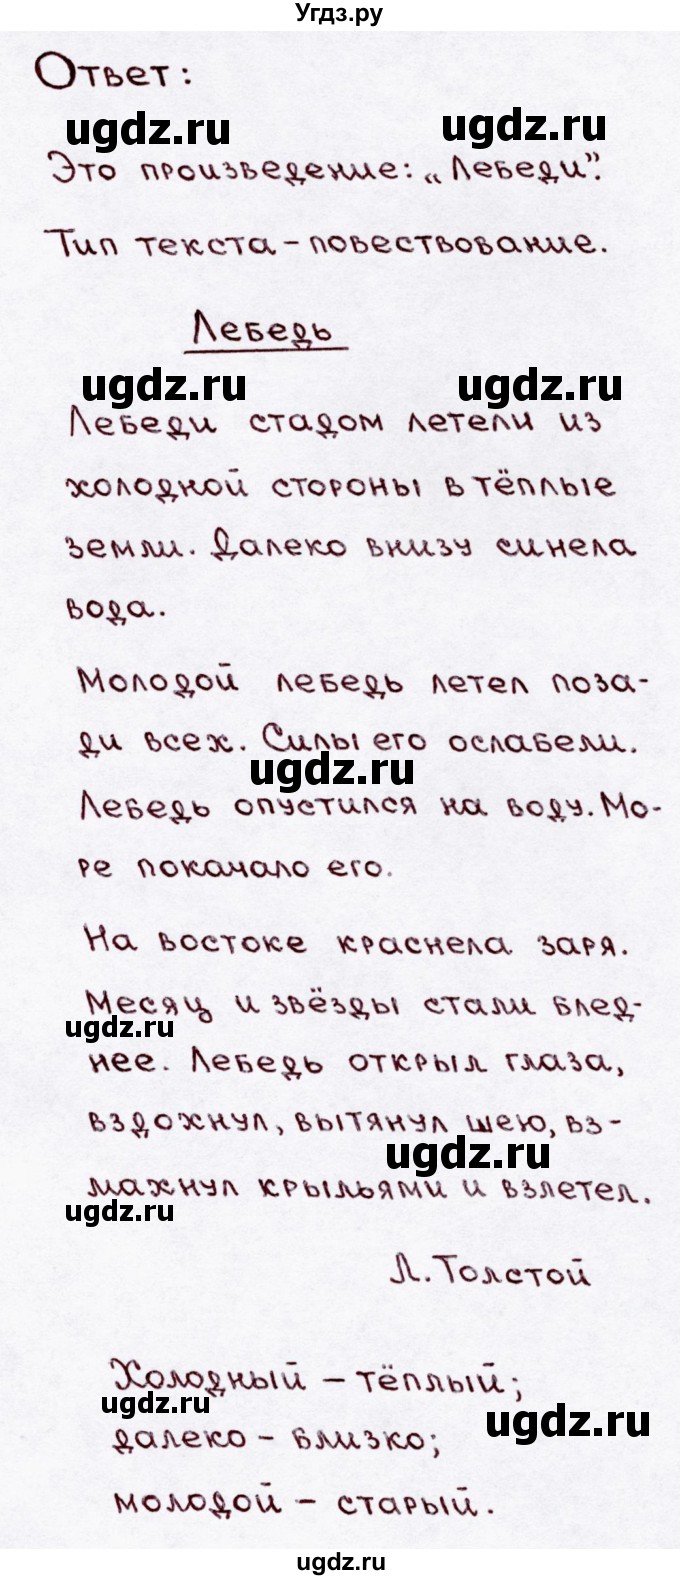 Угдз.ру
Ответ:
ugdz.ru ugdz.ru
Это произведение: „Лебеди”.
Тип текста – повествование.
Лебедь
ugdz.ru ugdz.ru
Лебеди стадом летели из
холодной стороны в тёплые
земли. Далеко внизу синела
вода.
Молодой лебедь летел поза-
ди всех. Силы его ослабели.
ugdz.ru
Лебедь опустился на воду. Мо-
ре покачало его.
На востоке краснела заря.
Месяц и звёзды стали блед-
ugdz.ru
нее. Лебедь открыл глаза,
вздохнул, вытянул шею, вз-
ugdz.ru
махнул крыльями и взлетел.
ugdz.ru
Л. Толстой
Холодный – тёплый;
ugdz.ru ugdz.ru
далеко – близко;
молодой – старый.
ugdz.ru